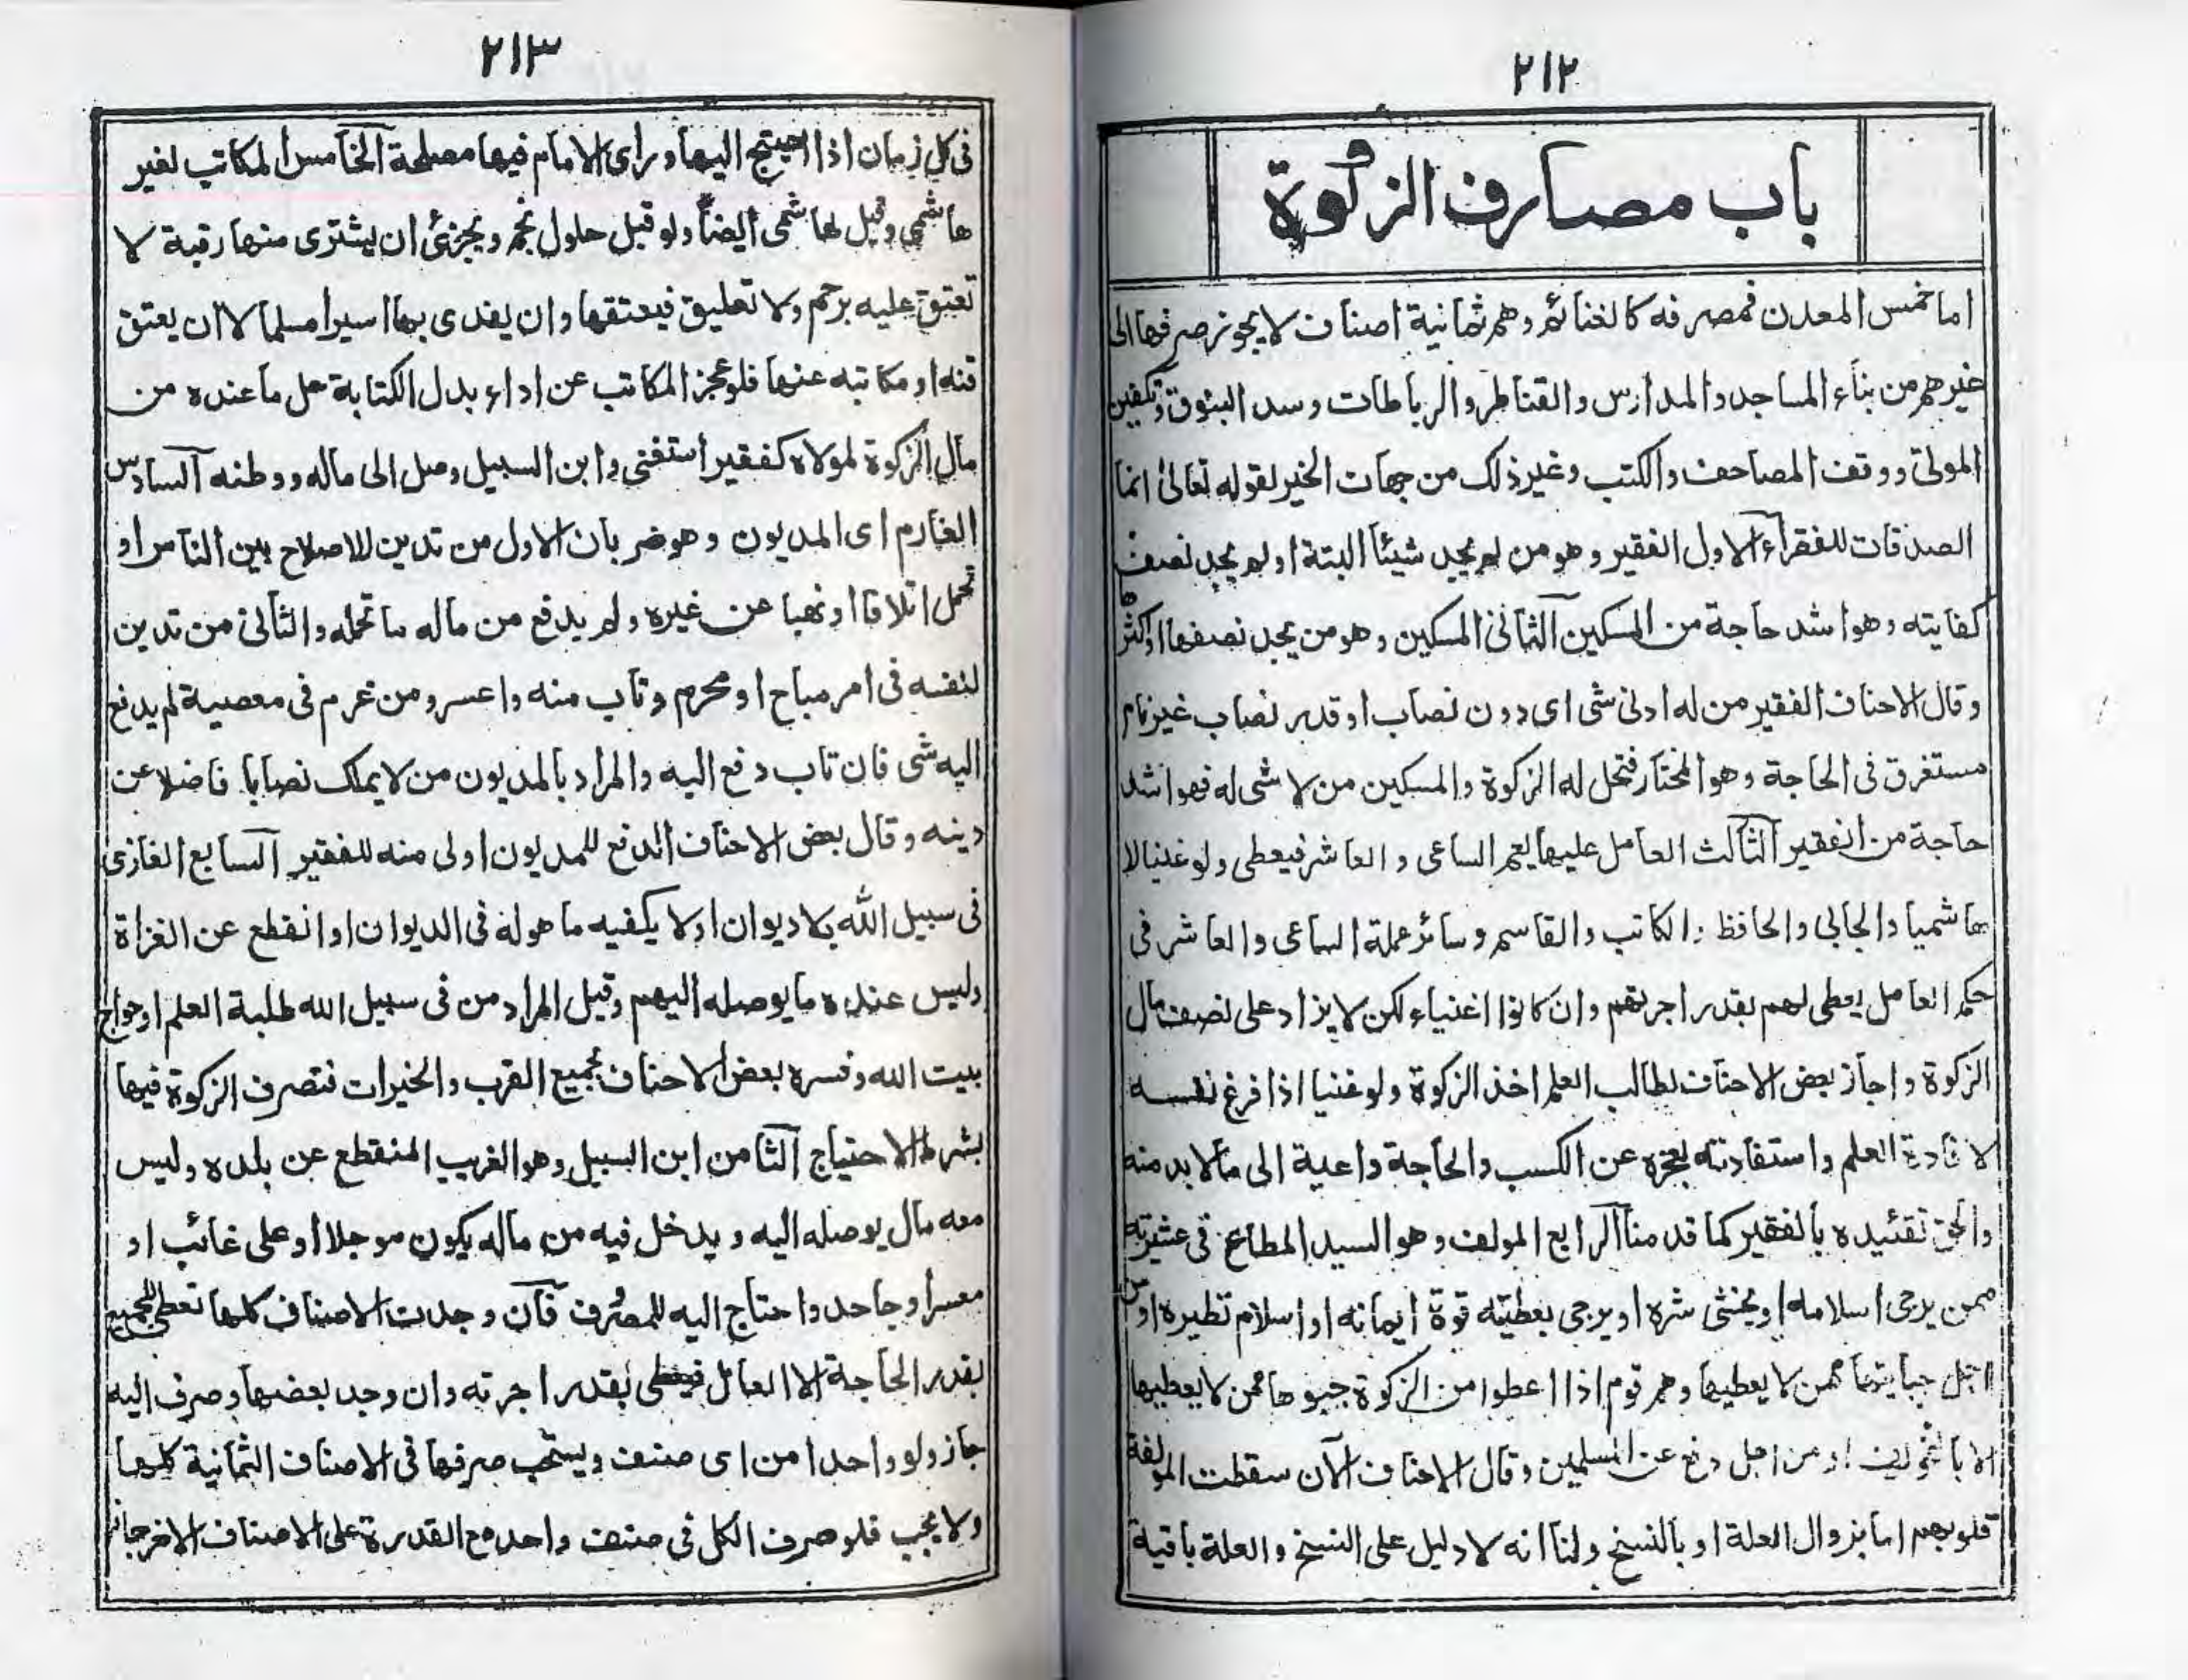 ٢١٢
باب مصارف الزكوة
اما خمس المعدن فمصرفه كالغنائم وهم ثمانية اصناف لا يجوز صرفها الى
غيرهم من بناء المساجد والمدارس والقناطر والرباطات وسد البثوق وتكفين
الموتى ووقف المصاحف والكتب وغير ذلك من جهات الخير لقوله تعالىٰ انما
الصدقات للفقراء الاول الفقير وهو من لم يجد شيئا البتة او لم يجد نصف
كفايته وهو اشد حاجة من المسكين الثانى المسكين وهو من يجد نصفها او اكثرها
وقال الاحناف الفقير من له ادنى شى اى دون نصاب او قدر نصاب غير نام
مستغرق فى الحاجة وهو المختار فتحل له الزكوة والمسكين من لا شى له فهو اشد
حاجة من الفقير الثالث العامل عليها يعم الساعى والعاشر فيعطى ولو غنيا لا
هاشميا والجابى والحافظ والكاتب والقاسم وسائر عملة الساعى والعاشر فى
حكم العامل يعطى لهم بقدر اجرتهم وان كانوا اغنياء لكن لا يزاد على نصف مال
الزكوة واجاز بعض الاحناف لطالب العلم اخذ الزكوة ولو غنيا اذا فرغ نفسه
لافادة العلم واستفادته لعجزه عن الكسب والحاجة داعية الى مالابد منه
والحق تقئيده بالفقير كما قدمنا الرابع المولف وهو السيد المطاع فى عشيرته
ممن يرجى اسلامه او يخشى شره او يرجى بعطيته قوة ايمانه او اسلام نظيره او من
اجل جبايتها ممن لا يعطيها وهم قوم اذا اعطوا من الزكوة جبوها ممن لا يعطيها
الا بالتخويف او من اجل دفع عن المسلمين وقال الاحناف الآن سقطت المولفة
قلوبهم اما بزوال العلة او بالنسخ ولنا انه لا دليل على النسخ والعلة باقية
٢١٣
فى كل زمان اذا احيتج اليها وراى الامام فيها مصلحة الخامس المكاتب لغير
هاشمى وقيل لهاشمى ايضاً ولو قبل حلول نجم ويجزئ ان يشترى منها رقبة لا
تعتق عليه برحم ولا تعليق فيعتقها وان يفدى بها اسيرا مسلما لا ان يعتق
قنه او مكاتبه عنها فلو عجز المكاتب عن اداء بدل الكتابة حل ما عنده من
مال الزكوة لمولاه كفقير استغنى وابن السبيل وصل الى ماله ووطنه السادس
الغارم اى المديون وهو ضربان الاول من تدين للاصلاح بين الناس او
تحمل اتلافا او نهبا عن غيره ولم يدفع من ماله ما تحمله والثانى من تدين
لنفسه فى امر مباح او محرم وتاب منه واعسر ومن غرم فى معصية لم يدفع
اليه شى فان تاب دفع اليه والمراد بالمديون من لا يملك نصابا فاضلا عن
دينه وقال بعض الاحناف الدفع للمديون اولى منه للفقير السابع الغازى
فى سبيل الله بلا ديوان او لا يكفيه ما هو له فى الديوان او انقطع عن الغزاة
وليس عنده ما يوصله اليهم وقيل المراد من فى سبيل الله طلبة العلم او حواج
بيت الله وفسره بعض الاحناف بجميع القرب والخيرات فتصرف الزكوة فيها
بشرط الاحتياج الثامن ابن السبيل وهو الغريب المنقطع عن بلده وليس
معه مال يوصله اليه ويدخل فيه من ماله يكون موجلا او على غائب او
معسر او جاحد واحتاج اليه للمصرف فآن وجدت الاصناف كلها تعطى للجميع
بقدر الحاجة الا العامل فيعطى بقدر اجرته وان وجد بعضها وصرف اليه
جاز ولو واحدا من اى صنف ويستحب صرفها فى الاصناف الثمانية كلها
ولا يجب فلو صرف الكل فى صنف واحد مع القدرة على الاصناف الاخر جاز